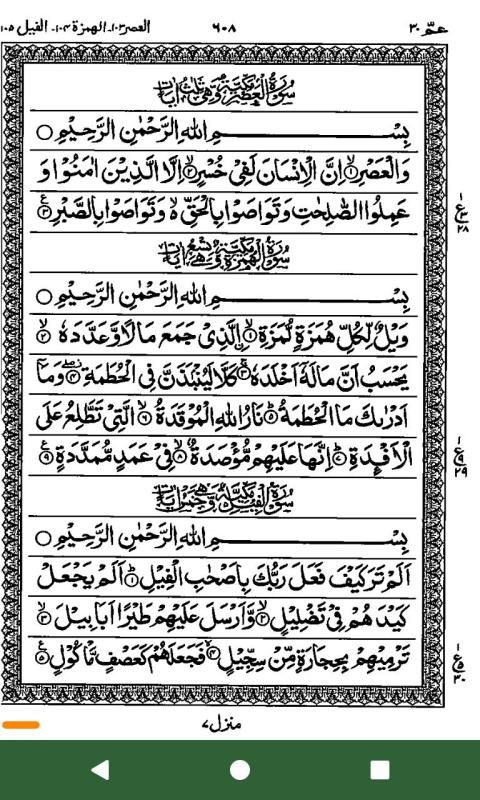 عمّ ٣٠ ٦٠٨ العصر ١٠٣۔ الهمزة ١٠٤۔ الفيل ١٠٥
سُوْرَةُ الْعَصْرِ مَكِّيَّةٌ وَّهِيَ ثَلٰثُ اٰيَاتٍ
بِسْـــــــمِ اللهِ الرَّحْمٰنِ الرَّحِيْمِ ○
وَالْعَصْرِ ۙ﴿١﴾ اِنَّ الْاِنْسَانَ لَفِيْ خُسْرٍ ۙ﴿٢﴾ اِلَّا الَّذِيْنَ اٰمَنُوْا وَ
عَمِلُوا الصّٰلِحٰتِ وَتَوَاصَوْا بِالْحَقِّ ۙ۬ وَتَوَاصَوْا بِالصَّبْرِ ﴿٣﴾
سُوْرَةُ الْهُمَزَةِ مَكِّيَّةٌ وَّهِيَ تِسْعُ اٰيَاتٍ
بِسْـــــــمِ اللهِ الرَّحْمٰنِ الرَّحِيْمِ ○
وَيْلٌ لِّكُلِّ هُمَزَةٍ لُّمَزَةِ ۙ﴿١﴾ اِۨلَّذِيْ جَمَعَ مَالًا وَّعَدَّدَهٗ ۙ﴿٢﴾
يَحْسَبُ اَنَّ مَالَهٗۤ اَخْلَدَهٗ ۚ﴿٣﴾ كَلَّا لَيُنْۢبَذَنَّ فِي الْحُطَمَةِ ۖ﴿٤﴾ وَمَاۤ
اَدْرٰىكَ مَا الْحُطَمَةُ ؕ﴿٥﴾ نَارُ اللهِ الْمُوْقَدَةُ ۙ﴿٦﴾ الَّتِيْ تَطَّلِعُ عَلَى
الْاَفْـِٕدَةِ ؕ﴿٧﴾ اِنَّهَا عَلَيْهِمْ مُّؤْصَدَةٌ ۙ﴿٨﴾ فِيْ عَمَدٍ مُّمَدَّدَةٍ ﴿٩﴾
سُوْرَةُ الْفِيْلِ مَكِّيَّةٌ وَّهِيَ خَمْسُ اٰيَاتٍ
بِسْـــــــمِ اللهِ الرَّحْمٰنِ الرَّحِيْمِ ○
اَلَمْ تَرَ كَيْفَ فَعَلَ رَبُّكَ بِاَصْحٰبِ الْفِيْلِ ؕ﴿١﴾ اَلَمْ يَجْعَلْ
كَيْدَهُمْ فِيْ تَضْلِيْلٍ ۙ﴿٢﴾ وَّاَرْسَلَ عَلَيْهِمْ طَيْرًا اَبَابِيْلَ ۙ﴿٣﴾
تَرْمِيْهِمْ بِحِجَارَةٍ مِّنْ سِجِّيْلٍ ۙ﴿٤﴾ فَجَعَلَهُمْ كَعَصْفٍ مَّاْكُوْلٍ ﴿٥﴾
منزل ٧